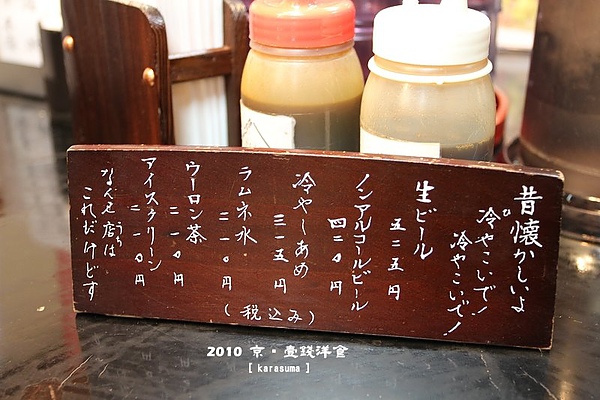 昔懐かしいよ
冷やこいで!
冷やこいで!
生ビール
五二五円
ノンアルコールビール
四二〇円
冷やしあめ
三一五円
ラムネ水
二一〇円
ウーロン茶
二一〇円
アイスクリーン
二一〇円
なんえ店は
うち
これだけどす
(税込み)
2010 京・壹錢洋食
[ karasuma ]